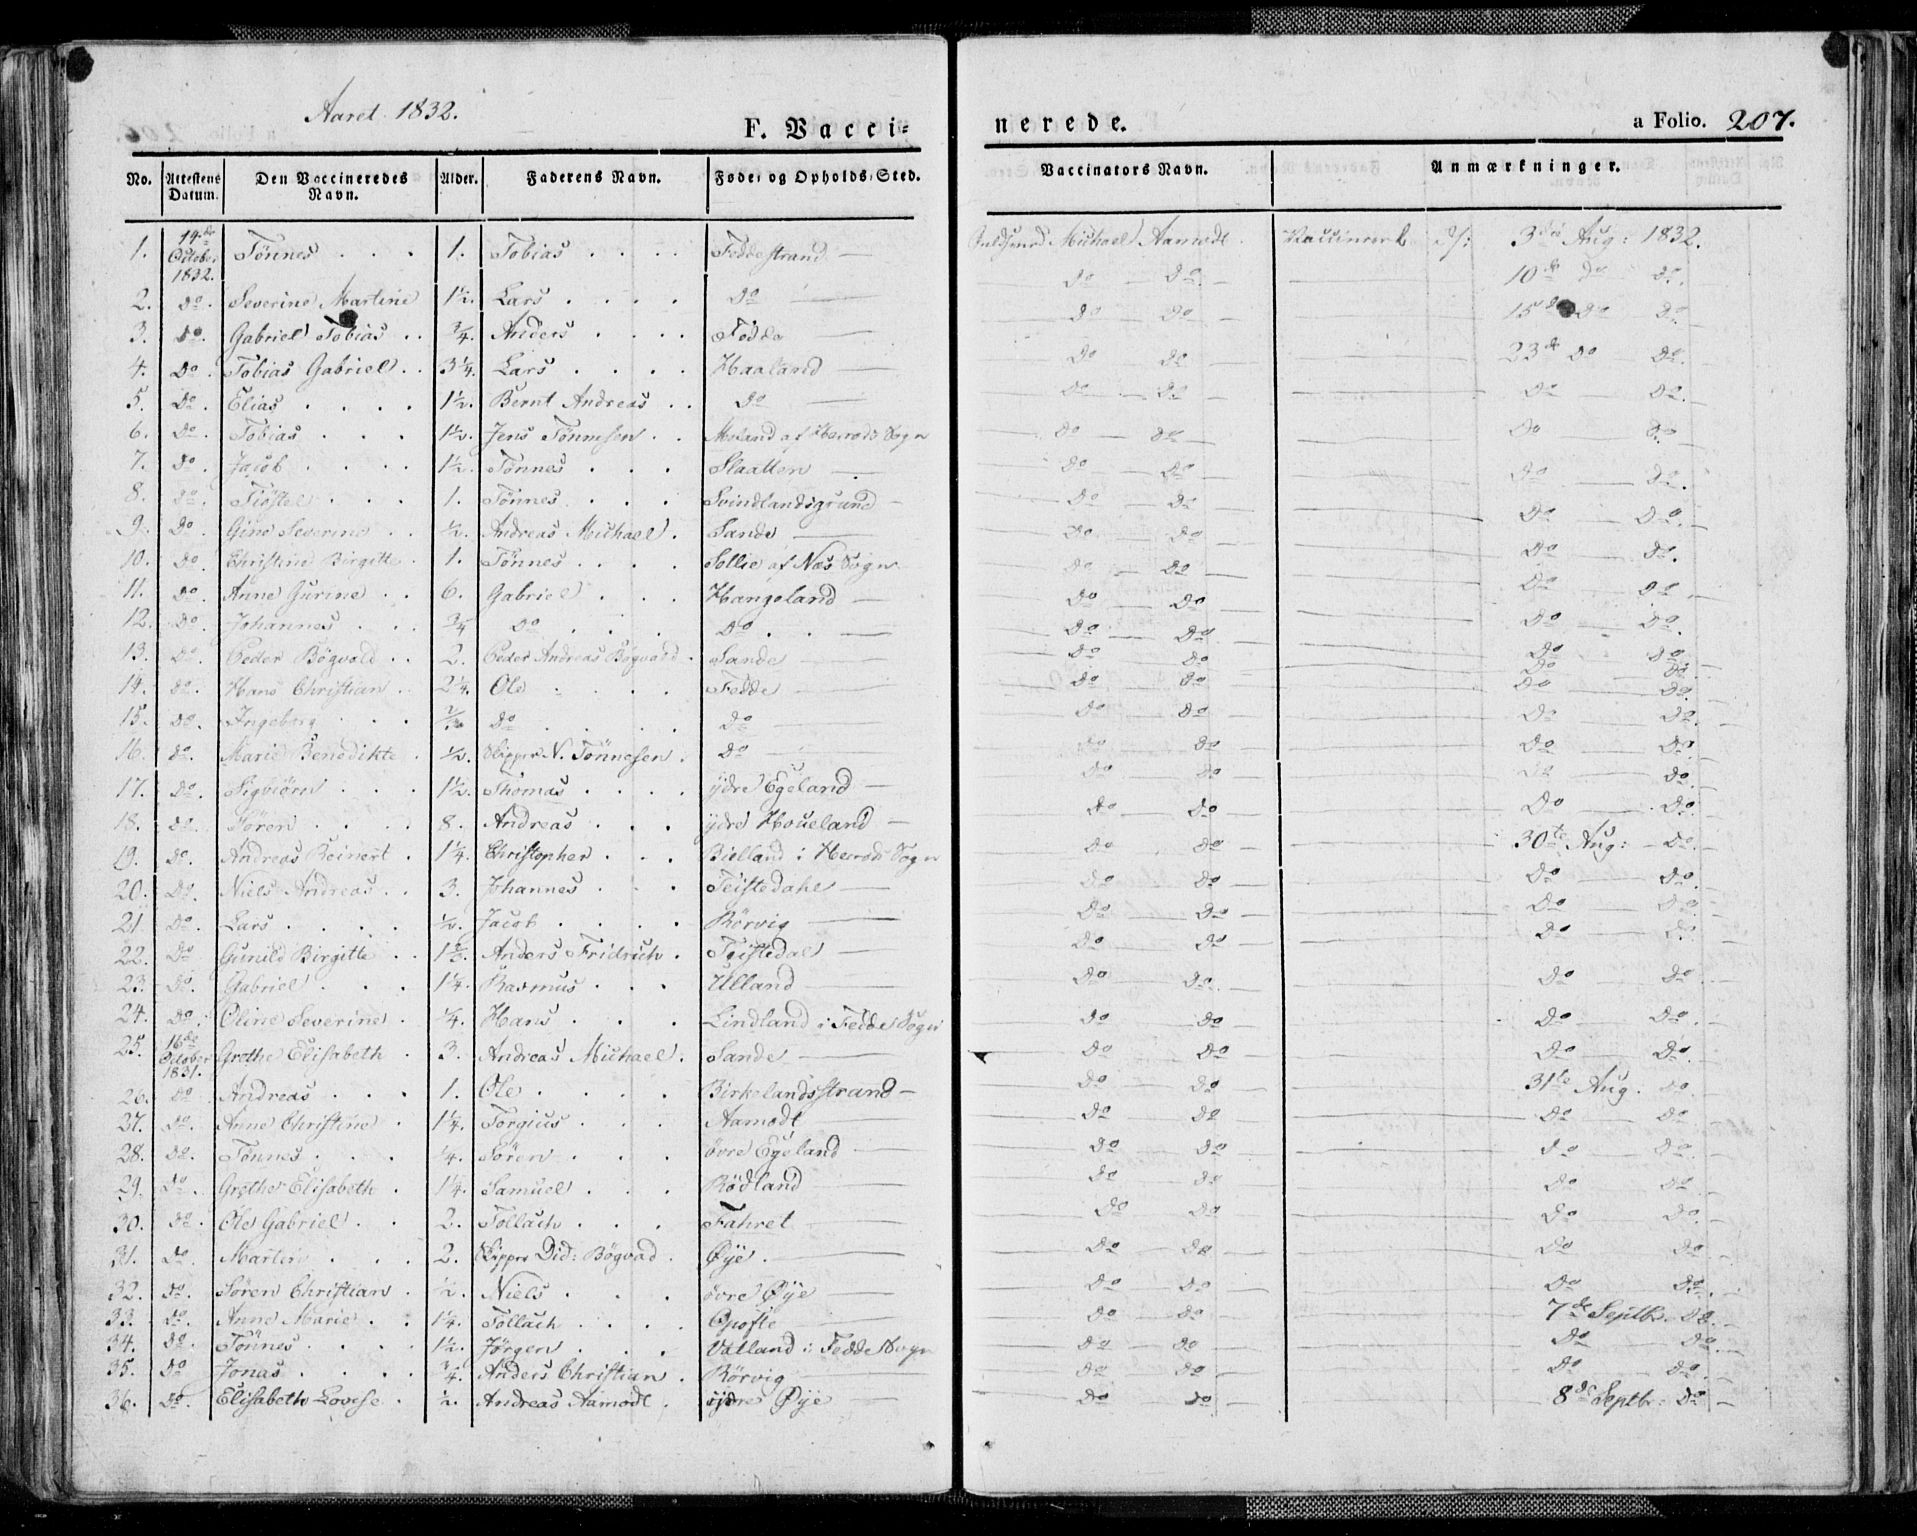 Aaret 1832.
F. Vacci=
nerede.
a Folio. 207.
No. Attestens Datum. Den Vaccineredes Navn. Alder. Faderens Navn. Føde= og Opholds=Sted. Vaccinators Navn. Anmærkninger.
1. 14de October 1832. Tönnes . . . 1. Tobias . . . . Feddestrand — Michael Aamodt. Vaccineret d/: 3die Aug: 1832.
2. do. Severine Martine 1½. Lars . . . . do — do — do. — 10de do do.
3. do. Gabriel Tobias . . ¾. Anders . . . . Fedde — do do — 15de do do.
4. do. Tobias Gabriel . . 3¼. Lars . . . . Haaland — do do — 23de do do.
5. do. Elias . . . . 1½. Bernt Andreas . . do — do — do — do do.
6. do. Tobias . . . 1½. Jens Tönnesen . . af Herrods Sogn do — do — do do.
7. do. Jacob . . . . 1½. Tönnes . . . Slaatten — do — do — do do.
8. do. Tiöstel . . . 1. Tönnes . . . Svindlandsgrund — do — do — do — do.
9. do. Gine Severine . . ½. Andreas Michael . Sande — do — do — do — do.
10. do. Christine Birgitte . 1. Tönnes . . . . Sollie af Næs Sogn do — do — do do
11. do. Anne Gurine . . 6. Gabriel . . . Hangeland — do — do — do — do.
12. do. Johannes . . . ¾ do . . . . do . . — do — do — do — do.
13. do. Peder Bögvald . . 2. Peder Andreas Bögvald . Sande — do do — do — do
14. do. Hans Christian . . 2¼. Ole . . . . Fedde — do do — do — do.
15. do. Ingeborg . . . do . . . . do — do do — do — do.
16. do. Marie Benedikte . ½. Skipper N. Tönnesen . do — do do — do — do
17. do. Sigbiörn . . . 1½. Thomas . . . . ydre Egeland — do do — do — do.
18. do. Sören . . . . 8. Andreas . . . ydre Houeland — do do — do — do.
19. do. Andreas Reinert . 1¼. Christopher . . . Bielland i Herrods Sogn do do — 30te Aug: — do.
20. do. Niels Andreas . . 3. Johannes . . . Teistedahl — do do — do — do.
21. do. Lars . . . . ½. Jacob . . . . Rörvig — do do — do do.
22. do Gunild Birgitte . . Anders Fridrich . Teistedal — do do — do — do.
23. do. Gabriel . . . 1¼. Rasmus . . . Ulland — do do. — do do.
24. do. Oline Severine . ¼. Hans . . . Lindland i Fedde Sogn do do — do do.
25. 16de October 1831. Grethe Elisabeth . 3. Andreas Michael . Sande — do do — do — do.
26. do Andreas . . . 1. Ole . . . . Birkelandsstrand — do do — 31te Aug. do
27. do. Anne Christine . 1¼. Torgius . . . Aamodt — do do — do do
28. do. Tönnes . . . ¼. Sören . . . övre Egeland — do do — do — do.
29. do. Grethe Elisabeth . 1¼. Samuel . . . Rödland — do do — do do.
30. do. Ole Gabriel . . 2. Tollach . . . Fahret — do do — do — do.
31. do. Martin . . . 2. Skipper Did: Bögvad . Øye . — do — do — do do
32. do. Sören Christian . ½. Niels . . . övre Øye — do — do — do do.
33. do. Anne Marie . . 1¼. Tollach . . . . Opofte — do do — 7de Septbr. do.
34. do. Tönnes . . . . 1½. Jörgen . . . Vatland i Fedde Sogn do — do — do do.
35. do Jonas . . . . ¾. Anders Christian . Rörvig — do do — do — do.
36. do Elisabeth Lovise . ½. Andreas Aamodt . ydre Øye — do do — 8de Septbr: do